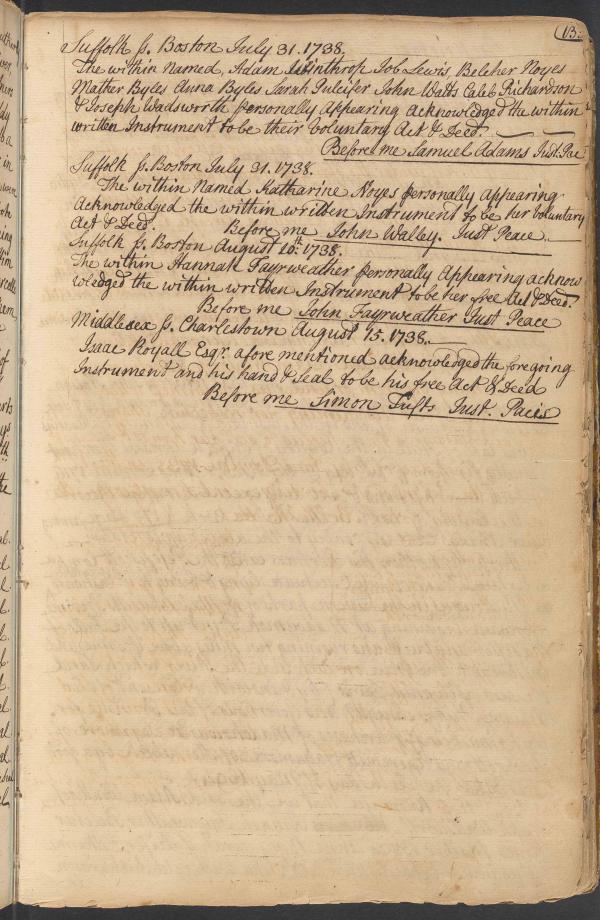 13.
Suffolk ſs. Boston July 31. 1738.
The within named, Adam Winthrop Job Lewis Belcher Noyes
Mather Byles Anna Byles Sarah Pulcifer John Watts Caleb Richardson
& Joseph Wadsworth personally Appearing acknowledged the within
written Instrument to be their voluntary Act & Deed.
Before me Samuel Adams Just. Pac
Suffolk ſs. Boston July 31. 1738.
The within Named Katharine Noyes personally appearing
Acknowledged the within written Instrument to be her voluntary
Act & Deed. Before me John Walley. Just Peace
Suffolk ſs. Boston August 10th. 1738.
The within Hannah Fayrweather personally Appearing acknow
wledged the within written Instrument to be her free Act & Deed.
Before me John Fayrweather Just Peace
Middlesex ſs. Charlestown August 15. 1738.
Isaac Royall Esqr. afore mentioned acknowledged the foregoing
Instrument and his hand & Seal to be his free Act & Deed
Before me Simon Tufts Just. Pacis